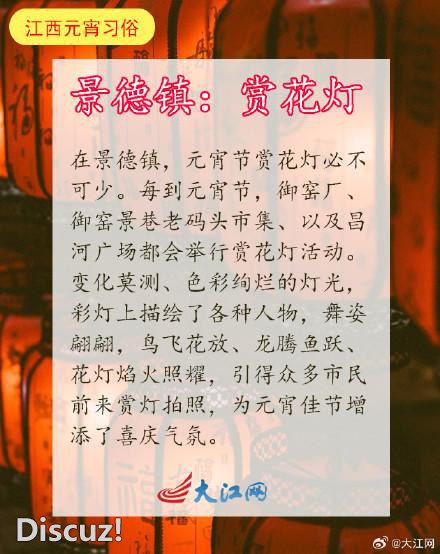 江西元宵习俗
景德镇：赏花灯
在景德镇，元宵节赏花灯必不
可少。每到元宵节，御窑厂、
御窑景巷老码头市集、以及昌
河广场都会举行赏花灯活动。
变化莫测、色彩绚烂的灯光，
彩灯上描绘了各种人物，舞姿
翩翩，鸟飞花放、龙腾鱼跃、
花灯焰火照耀，引得众多市民
前来赏灯拍照，为元宵佳节增
添了喜庆气氛。
大江网
Discuz!
@大江网